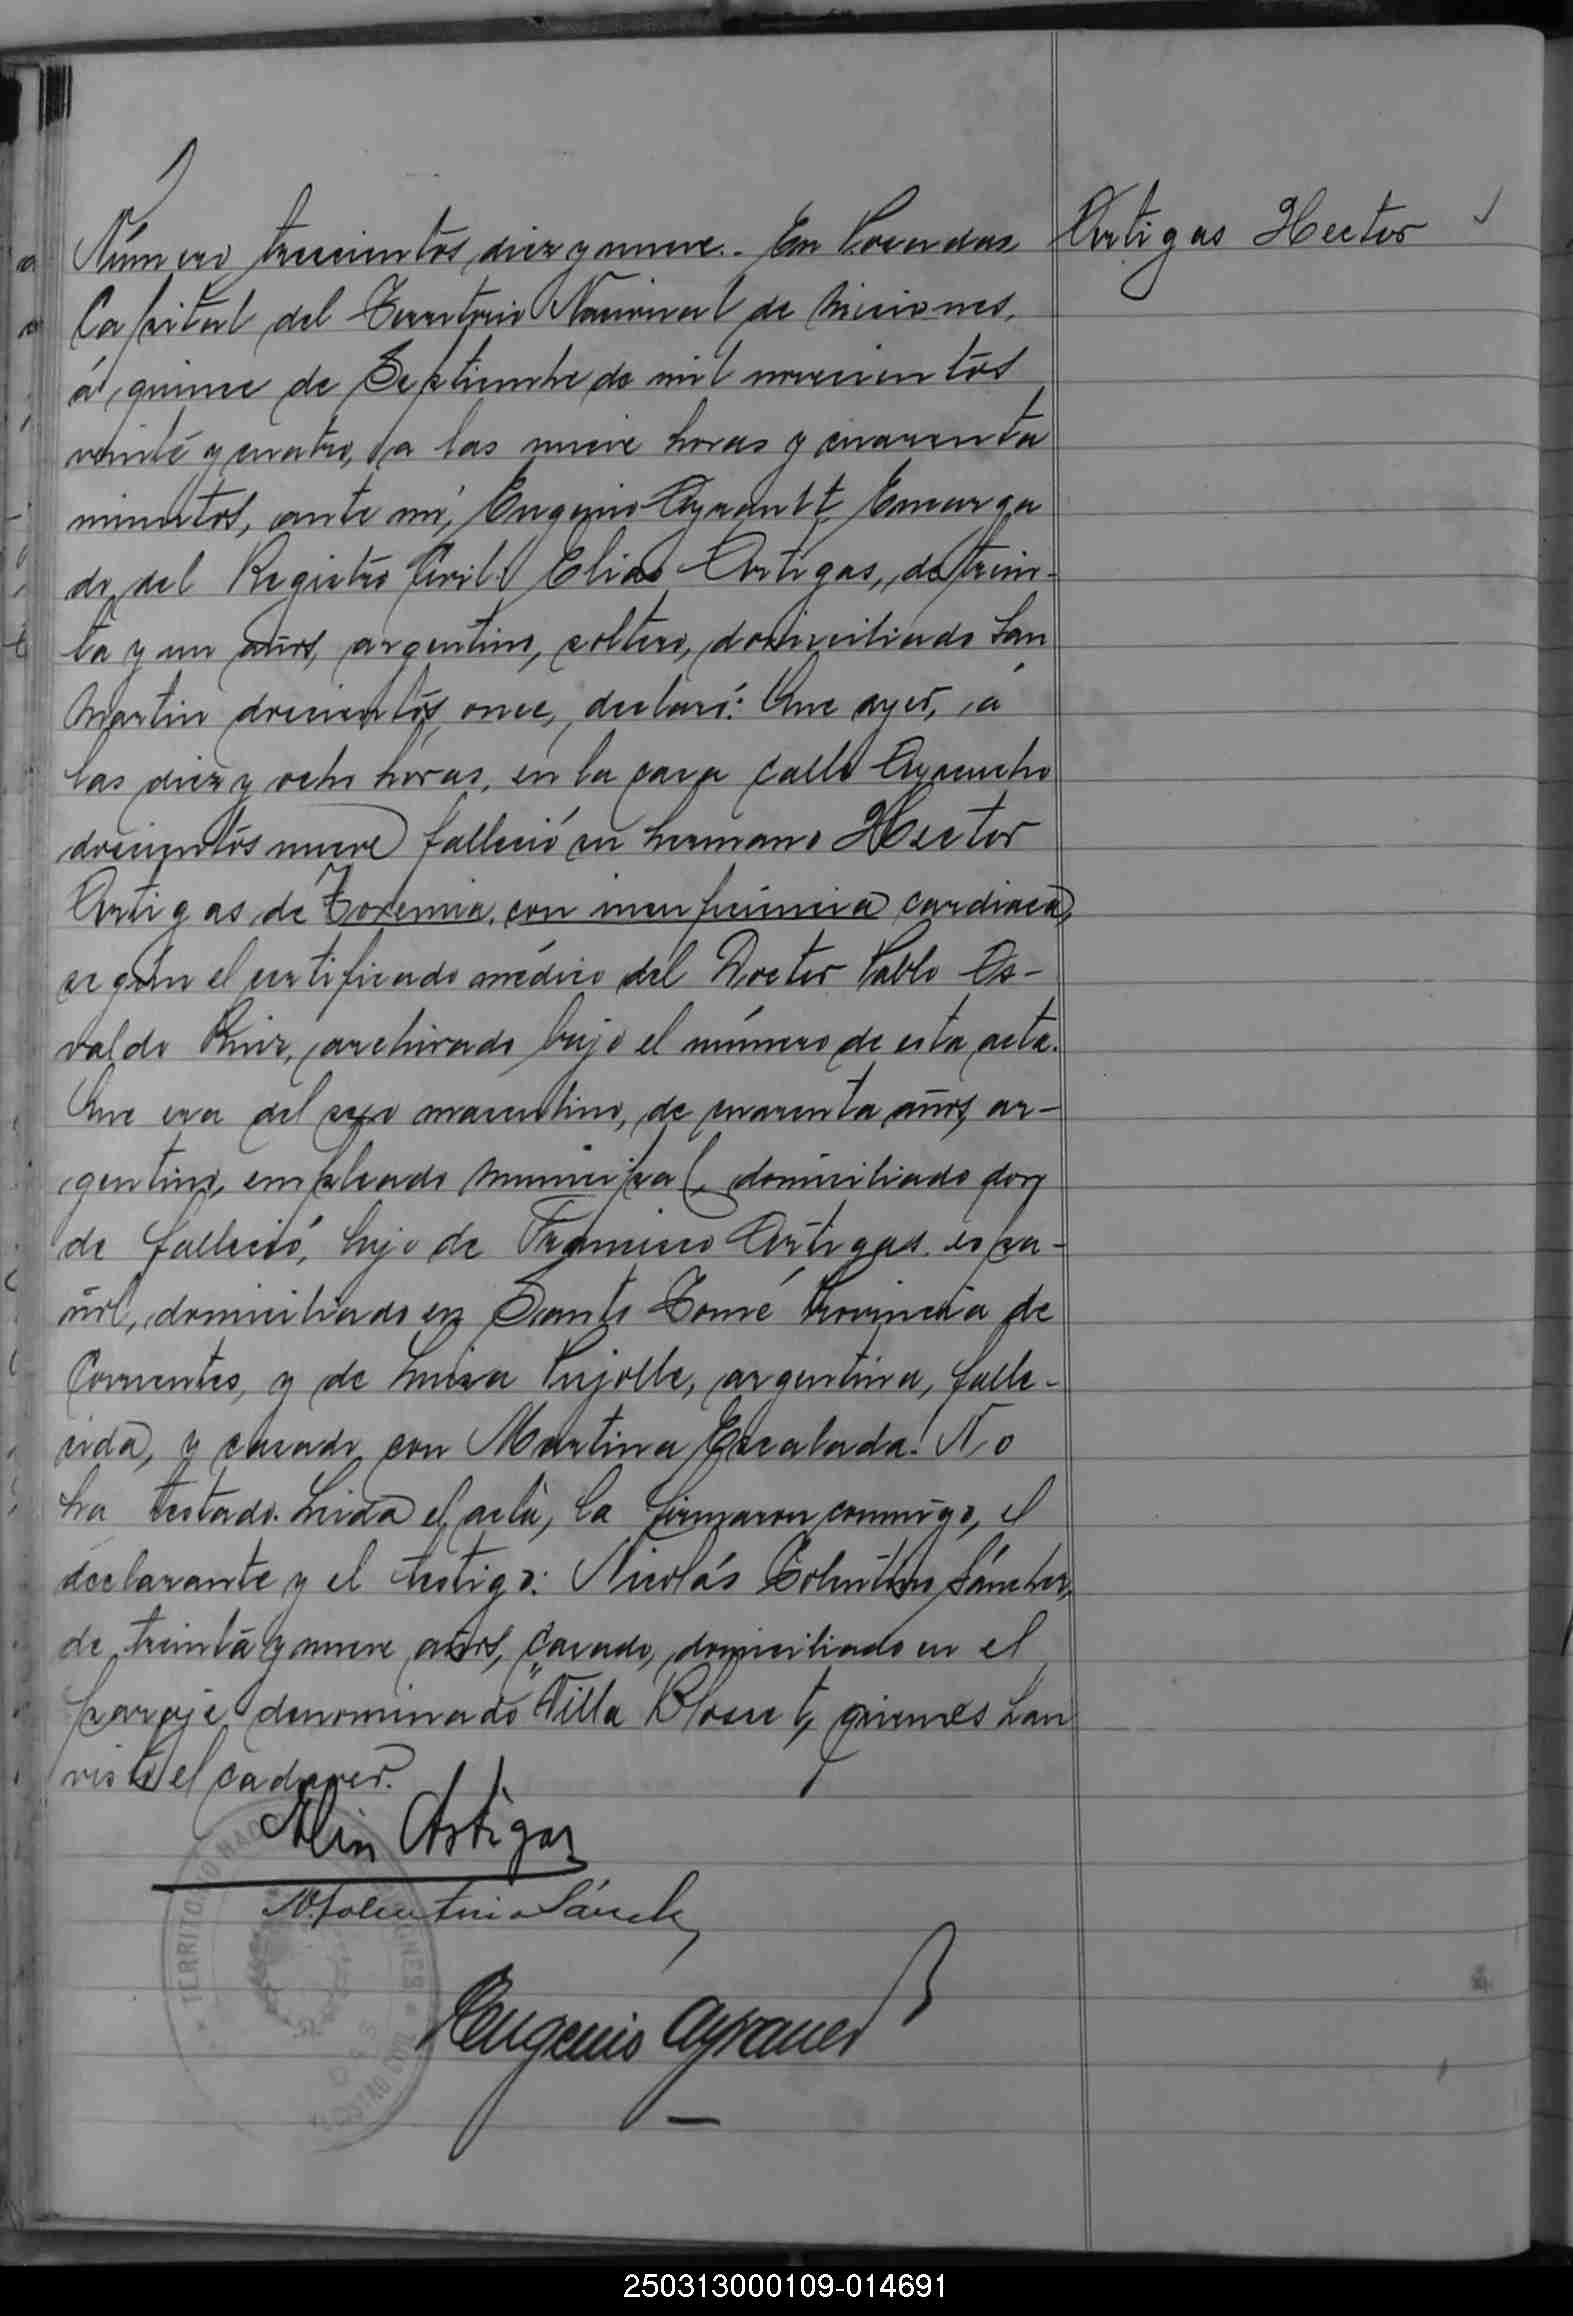 Número trescientos diez y nueve.- En Posadas
Artigas Hector
Capital del Territorio Nacional de Misiones,
á quince de Septiembre de mil novecientos
veinte y cuatro, a las nueve horas y cuarenta
minutos, ante mí, Eugenio Ayrault, Encarga
do del Registro Civil: Elias Artigas, de trein-
ta y un años, argentino, soltero, domiciliado San
Martin doscientos once, declaró: Que ayer, á
las diez y ocho horas, en la casa calle Ayacucho
doscientos nueve falleció su hermano Hector
Artigas de Toxemia con insuficiencia cardiaca,
según el certificado médico del Doctor Pablo Os-
valdo Ruiz, archivado bajo el número de esta acta.
Que era del sexo masculino, de cuarenta años, ar-
gentino, empleado municipal, domiciliado don
de falleció, hijo de Francisco Artigas, espa-
ñol, domiciliado en Santo Tomé Provincia de
Corrientes, y de Luisa Pujolle, argentina, falle-
cida, y casado con Martina Escalada. No
ha testado. Leida el acta, la firmaron conmigo, el
declarante y el testigo: Nicolás Tolentino Sánchez,
de treinta y nueve años, casado, domiciliado en el
paraje denominado "Villa Blosset, quienes han
visto el cadaver.
Elias Artigas
N. Tolentino Sánchez
Eugenio Ayrault
TERRITORIO NACIONAL
MISIONES
250313000109-014691